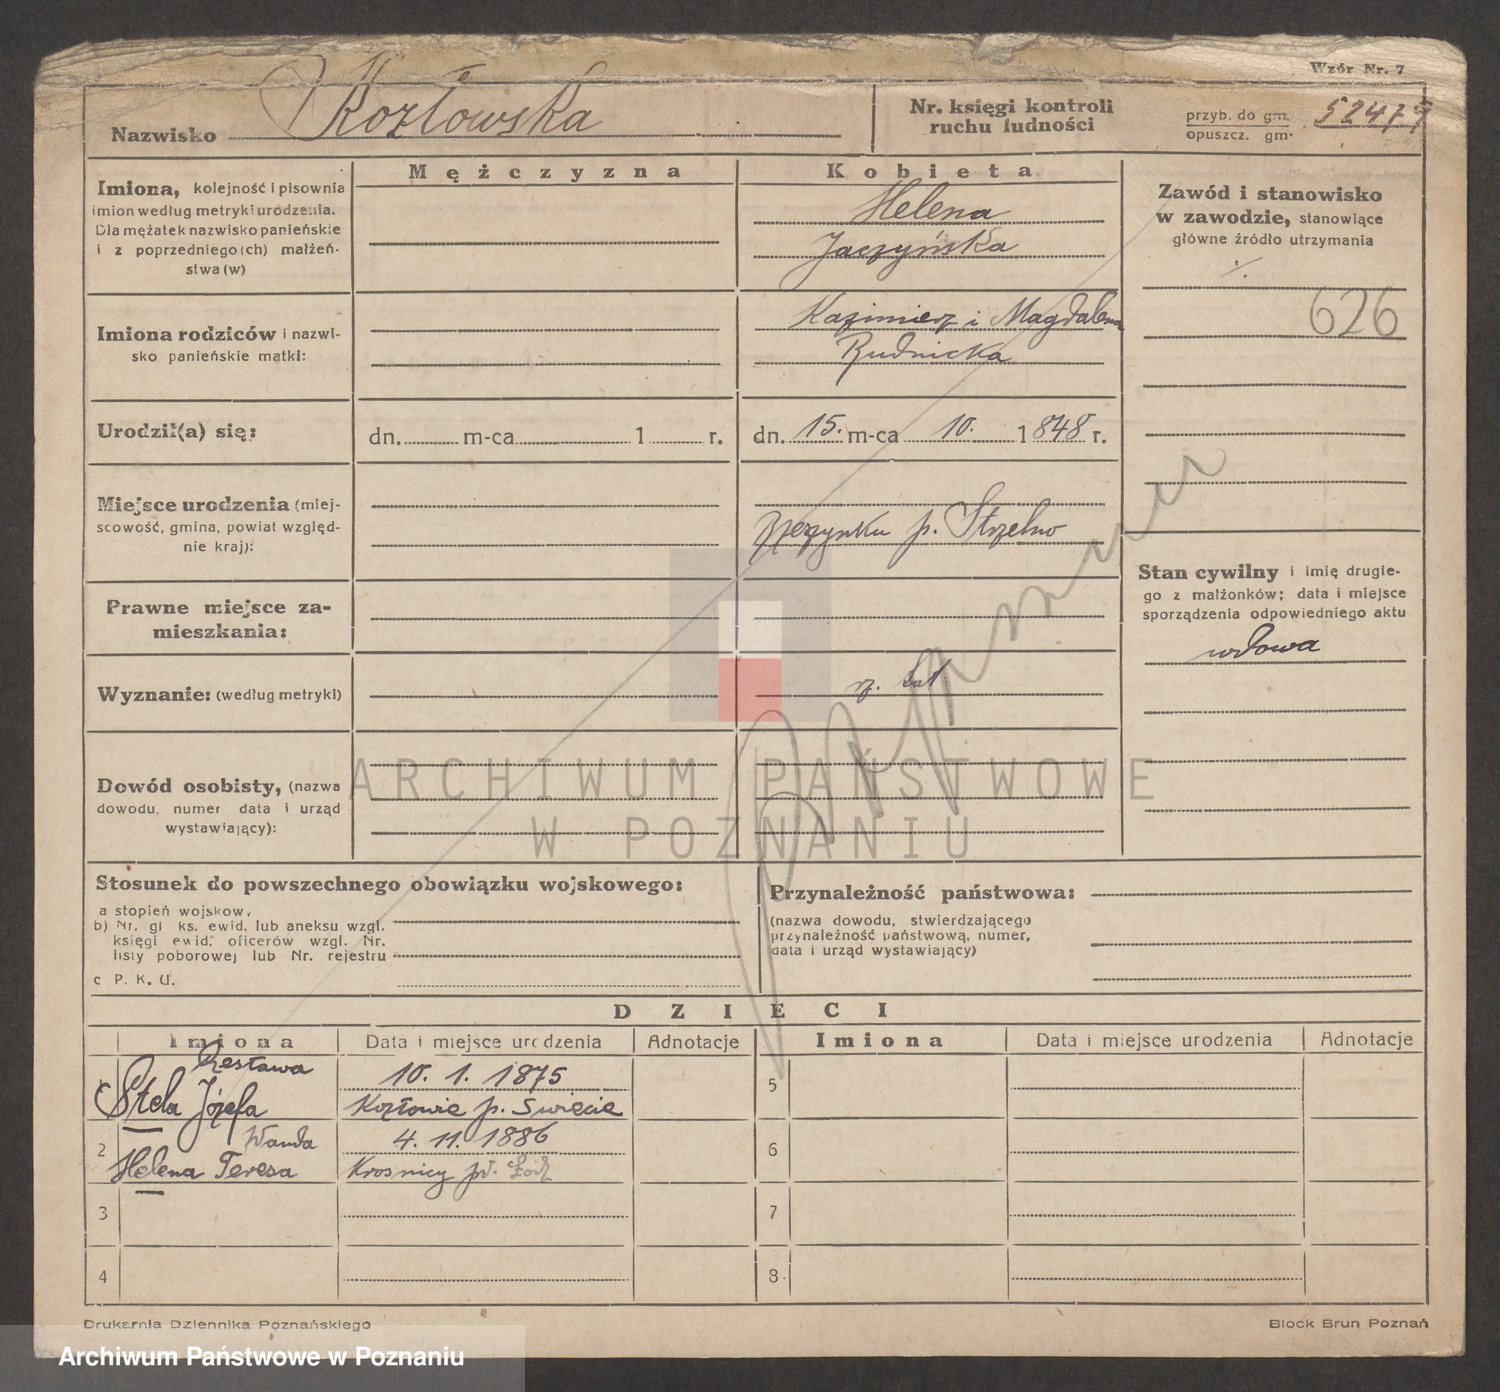 Wzór Nr. 7
Nazwisko Kozłowska
Nr. księgi kontroli
ruchu ludności
przyb. do gm.
opuszcz. gm.
52479
Mężczyzna
Kobieta
Imiona, kolejność i pisownia
imion według metryki urodzenia.
Dla mężatek nazwisko panieńskie
i z poprzedniego(ch) małżeń-
stwa(w)
Helena
Jaczyńska
Zawód i stanowisko
w zawodzie, stanowiące
główne źródło utrzymania
./.
626
Imiona rodziców i nazwi-
sko panieńskie matki:
Kazimierz i Magdalena
Rudnicka
Urodził(a) się:
dn. m-ca 1 r.
dn. 15. m-ca 10. 1848 r.
Miejsce urodzenia (miej-
scowość, gmina, powiat względ-
nie kraj):
p. Strzelno
Stan cywilny i imię drugie-
go z małżonków; data i miejsce
sporządzenia odpowiedniego aktu
wdowa
Prawne miejsce za-
mieszkania:
Wyznanie: (według metryki)
rz. kat
Dowód osobisty, (nazwa
dowodu, numer data i urząd
wystawiający):
ARCHIWUM PAŃSTWOWE
W POZNANIU
Stosunek do powszechnego obowiązku wojskowego:
a stopień wojskow,
b) Nr. gł ks. ewid. lub aneksu wzgl.
księgi ewid. oficerów wzgl. Nr.
listy poborowej lub Nr. rejestru
c P. K. U.
Przynależność państwowa:
(nazwa dowodu, stwierdzającego
przynależność państwową, numer,
data i urząd wystawiający)
DZIECI
Imiona
Data i miejsce urodzenia
Adnotacje
Imiona
Data i miejsce urodzenia
Adnotacje
Czesława
Stela Józefa
10. 1. 1875
Kozłowie p. Swiecie
5
2
Wanda
Helena Teresa
4. 11. 1886
Krosnicy pd.
6
3
7
4
8
Drukarnia Dziennika Poznańskiego
Block Brun Poznań
Archiwum Państwowe w Poznaniu